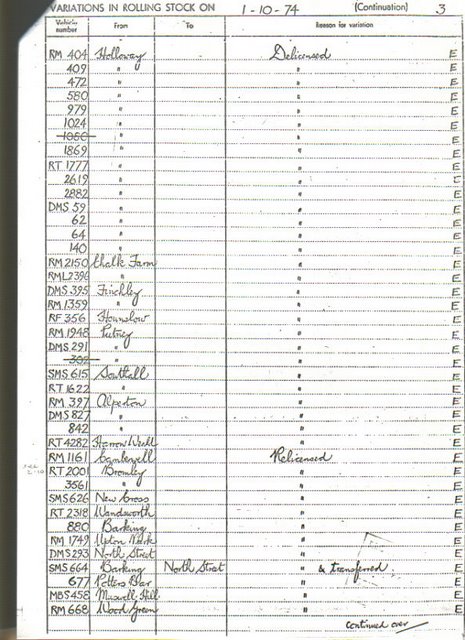 VARIATIONS IN ROLLING STOCK ON 1-10-74 (Continuation) 3
Vehicle number From To Reason for variation
RM 404 Holloway Delicensed E
409 " " E
472 " " E
580 " " E
979 " " E
1024 " " E
1050 " " E
1869 " " E
RT 1777 " " E
2619 " " E
2882 " " E
DMS 59 " " E
62 " " E
64 " " E
140 " " E
RM 2150 Chalk Farm " E
RML 2396 " " E
DMS 395 Finchley " E
RM 1359 " " E
RF 356 Hounslow " E
RM 1948 Putney " E
DMS 291 " " E
302 " " E
SMS 615 Southall " E
RT 1622 " " E
RM 397 Alperton " E
DMS 827 " " E
842 " " E
RT 4282 Harrow Weald " E
RM 1161 Camberwell Relicensed E
RT 2001 Bromley " E
3561 " " E
SMS 626 New Cross " E
RT 2318 Wandsworth " E
880 Barking " E
RM 1749 Upton Park " E
DMS 293 North Street " E
SMS 664 Barking North Street " & transferred E
677 Potters Bar " E
MBS 458 Muswell Hill " E
RM 668 Wood Green " E
continued over